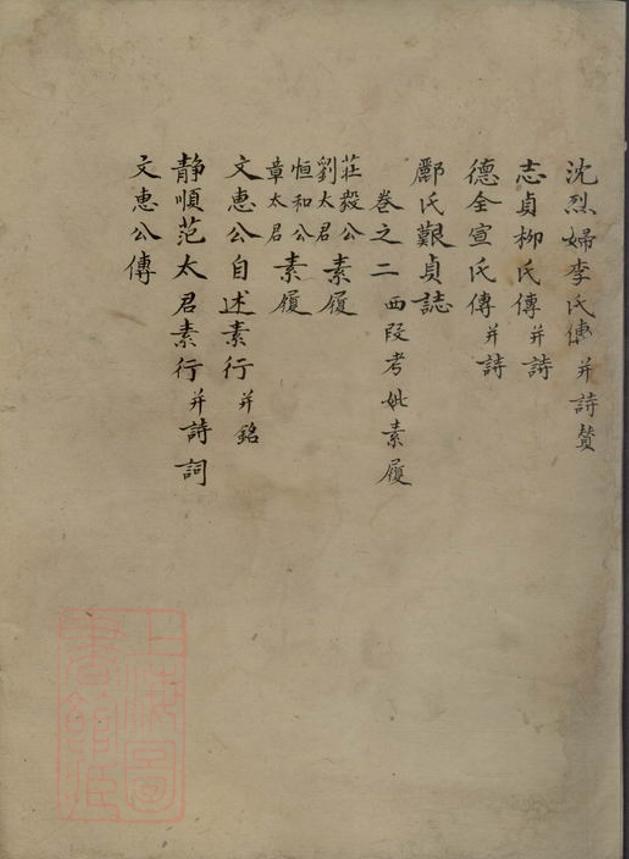 沈烈婦李氏傳并詩贊
志貞柳氏傳并詩
德全宣氏傳并詩
酈氏艱貞誌
卷之二 西段考妣素履
莊毅公劉太君素履
恒和公章太君素履
文惠公自述素行并銘
靜順范太君素行并詩詞
文惠公傳
上海圖書館藏